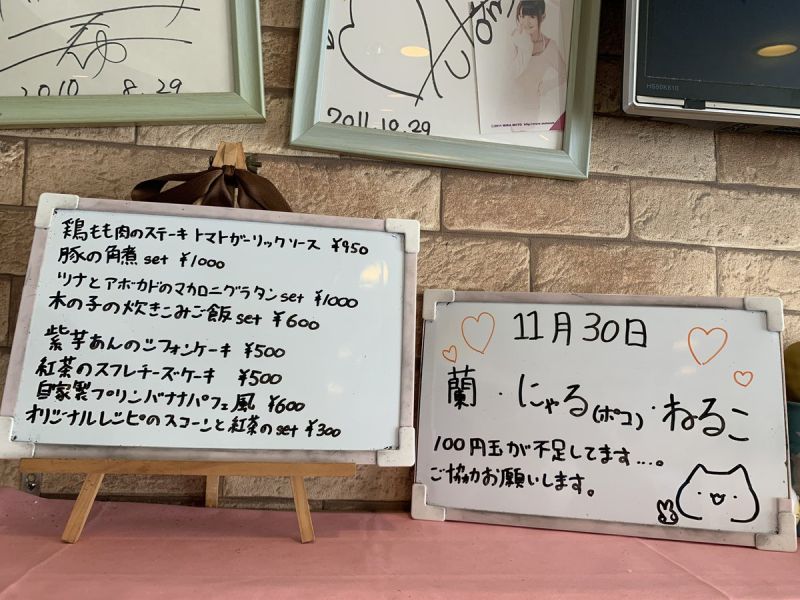 2010 8.29
2011.10.29
HG50K610
鶏もも肉のステーキ トマトガーリックソース ¥950
豚の角煮set ¥1000
ツナとアボカドのマカロニグラタンset ¥1000
木の子の炊きこみご飯set ¥600
紫芋あんのシフォンケーキ ¥500
紅茶のスフレチーズケーキ ¥500
自家製プリンバナナパフェ風 ¥600
オリジナルレシピのスコーンと紅茶のset ¥300
11月30日
蘭・にゃる(ポコ)・ねるこ
100円玉が不足してます….。
ご協力お願いします。